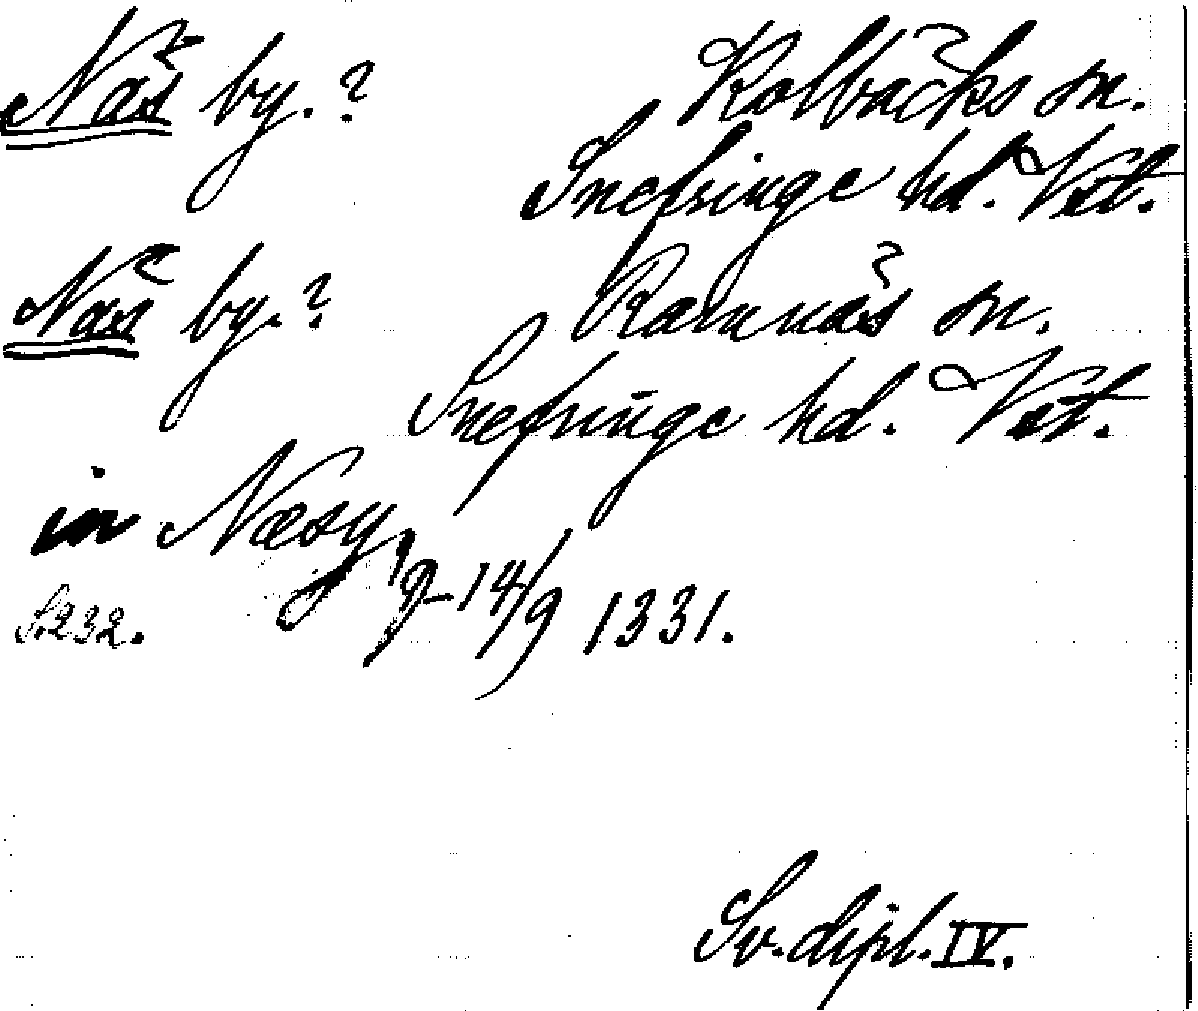 Näs by.? Kolbäcks sn.
Snefringe hd. Vstl.
Näs by.? Ramnäs sn.
Snefringe hd. Vstl.
in Næsy 14/9 1331.
S. 232.
Sv. dipl. IV.